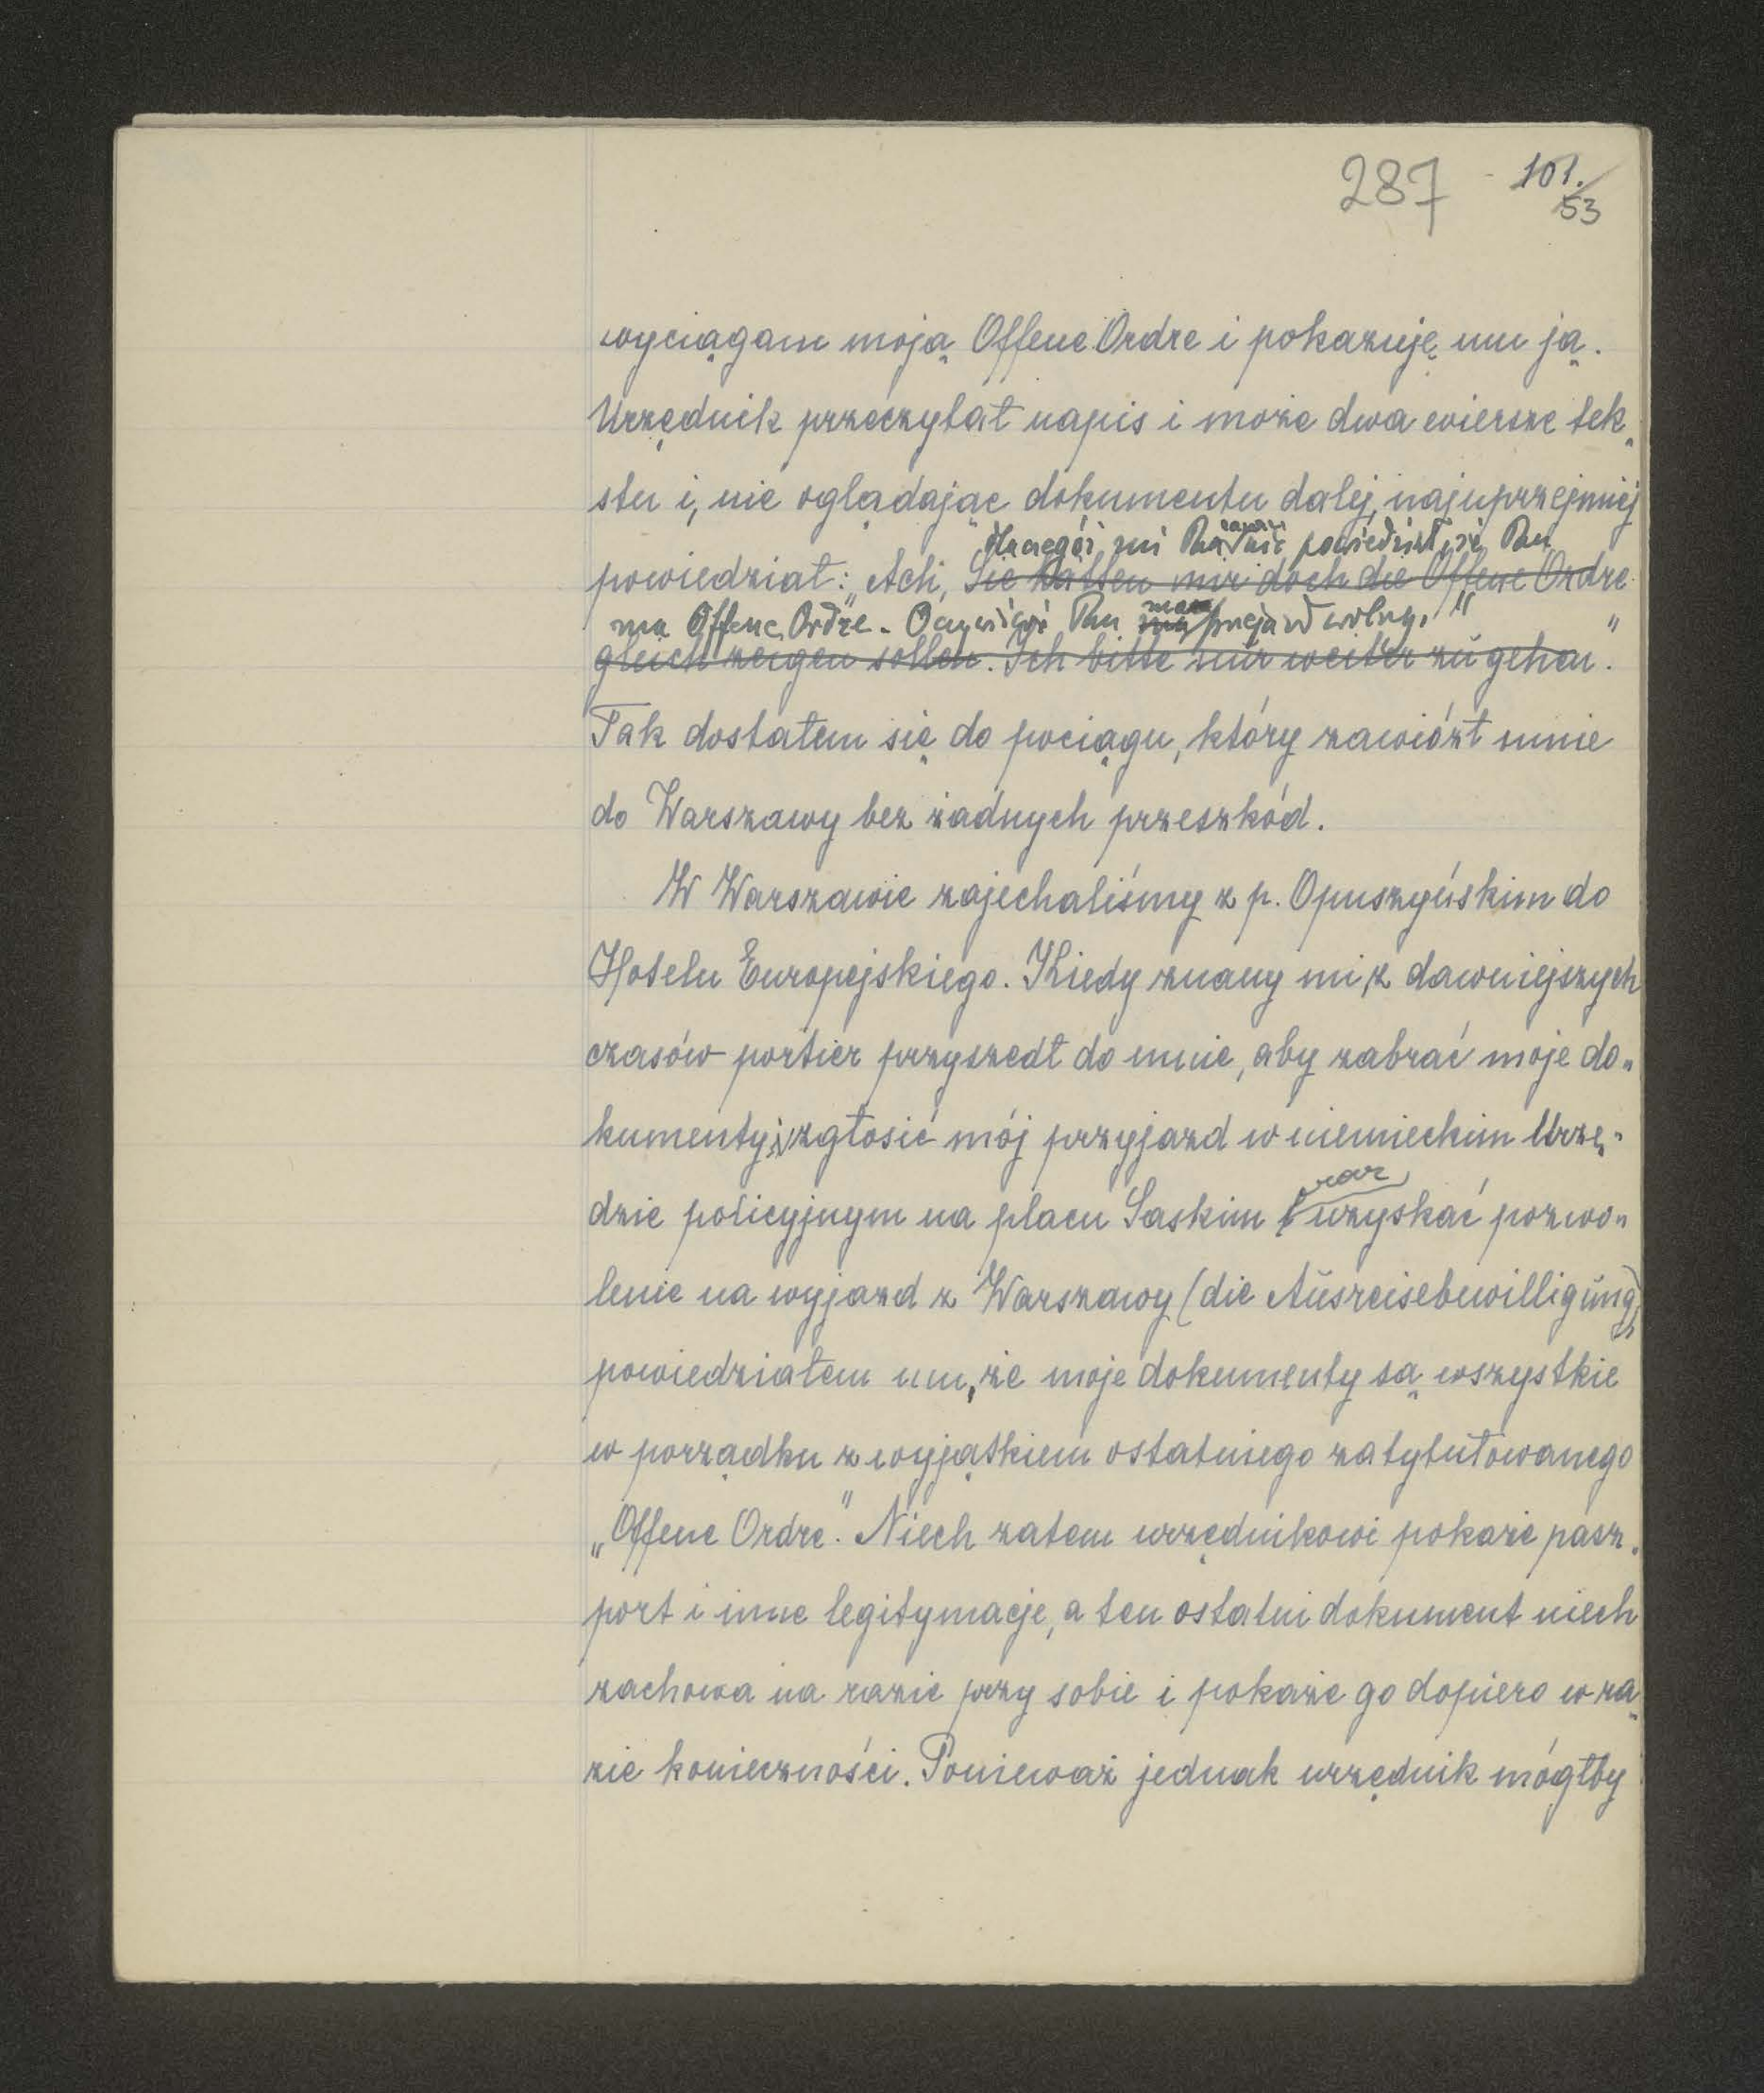 287 101.
53
wyciągam moją Offene Ordre i pokazuję mu ją.
Urzędnik przeczytał napis i może dwa wiersze tek„
stu i, nie oglądając dokumentu dalej, najuprzejmiej
dlaczegóż mi Pan zaraz nie powiedział, że Pan
powiedział: „Ach, Sie hätten mir doch die Offene Ordre
ma Offene Ordre. Oczywiście Pan ma przejazd wolny."
gleich zeigen sollen. Ich bitte nur weiter zu gehen."
Tak dostałem się do pociągu, który zawiózł mnie
do Warszawy bez żadnych przeszkód.
W Warszawie zajechaliśmy z p. Opuszyńskim do
Hotelu Europejskiego. Kiedy znany mi z dawniejszych
czasów portier przyszedł do mnie, aby zabrać moje do„
kumenty, zgłosić mój przyjazd w niemieckim Urzę„
dzie policyjnym na placu Saskim oraz uzyskać pozwo„
lenie na wyjazd z Warszawy (die Ausreisebewilligung),
powiedziałem mu, że moje dokumenty są wszystkie
w porządku z wyjątkiem ostatniego zatytułowanego
„Offene Ordre." Niech zatem urzędnikowi pokaże pasz„
port i inne legitymacje, a ten ostatni dokument niech
zachowa na razie przy sobie i pokaże go dopiero w ra„
zie konieczności. Ponieważ jednak urzędnik mógłby